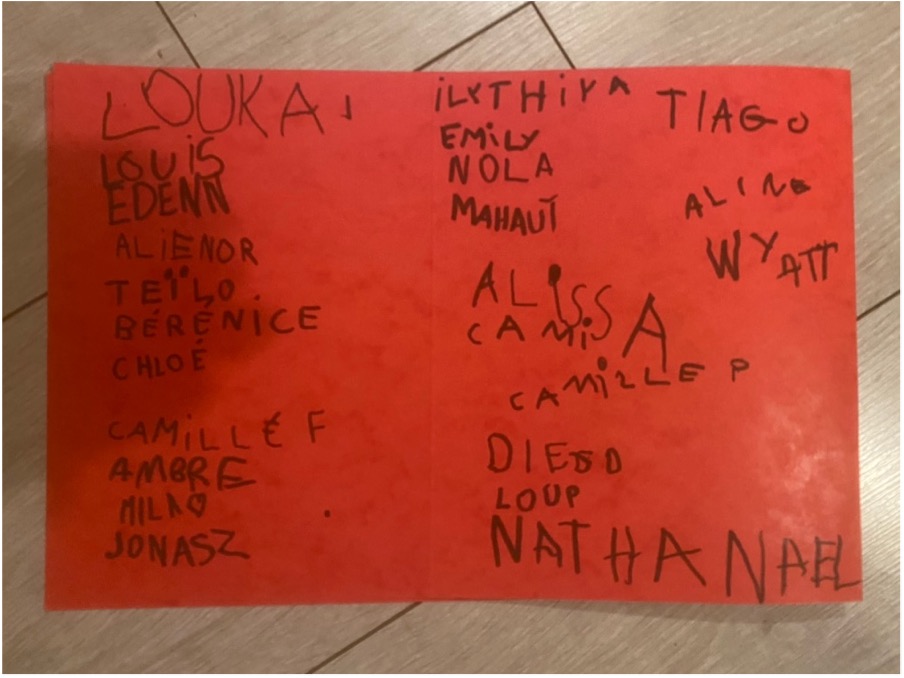 LOUKA
LOUIS
EDENN
ALIENOR
TEÏLO
BÉRÉNICE
CHLOÉ
CAMILLE F
AMBRE
MILAO
JONASZ
ILYTHIYA
EMILY
NOLA
MAHAUT
ALISSA
CAMi
CAMILLE P
DIEGO
LOUP
NATHANAEL
TIAGO
ALINE
WYATT